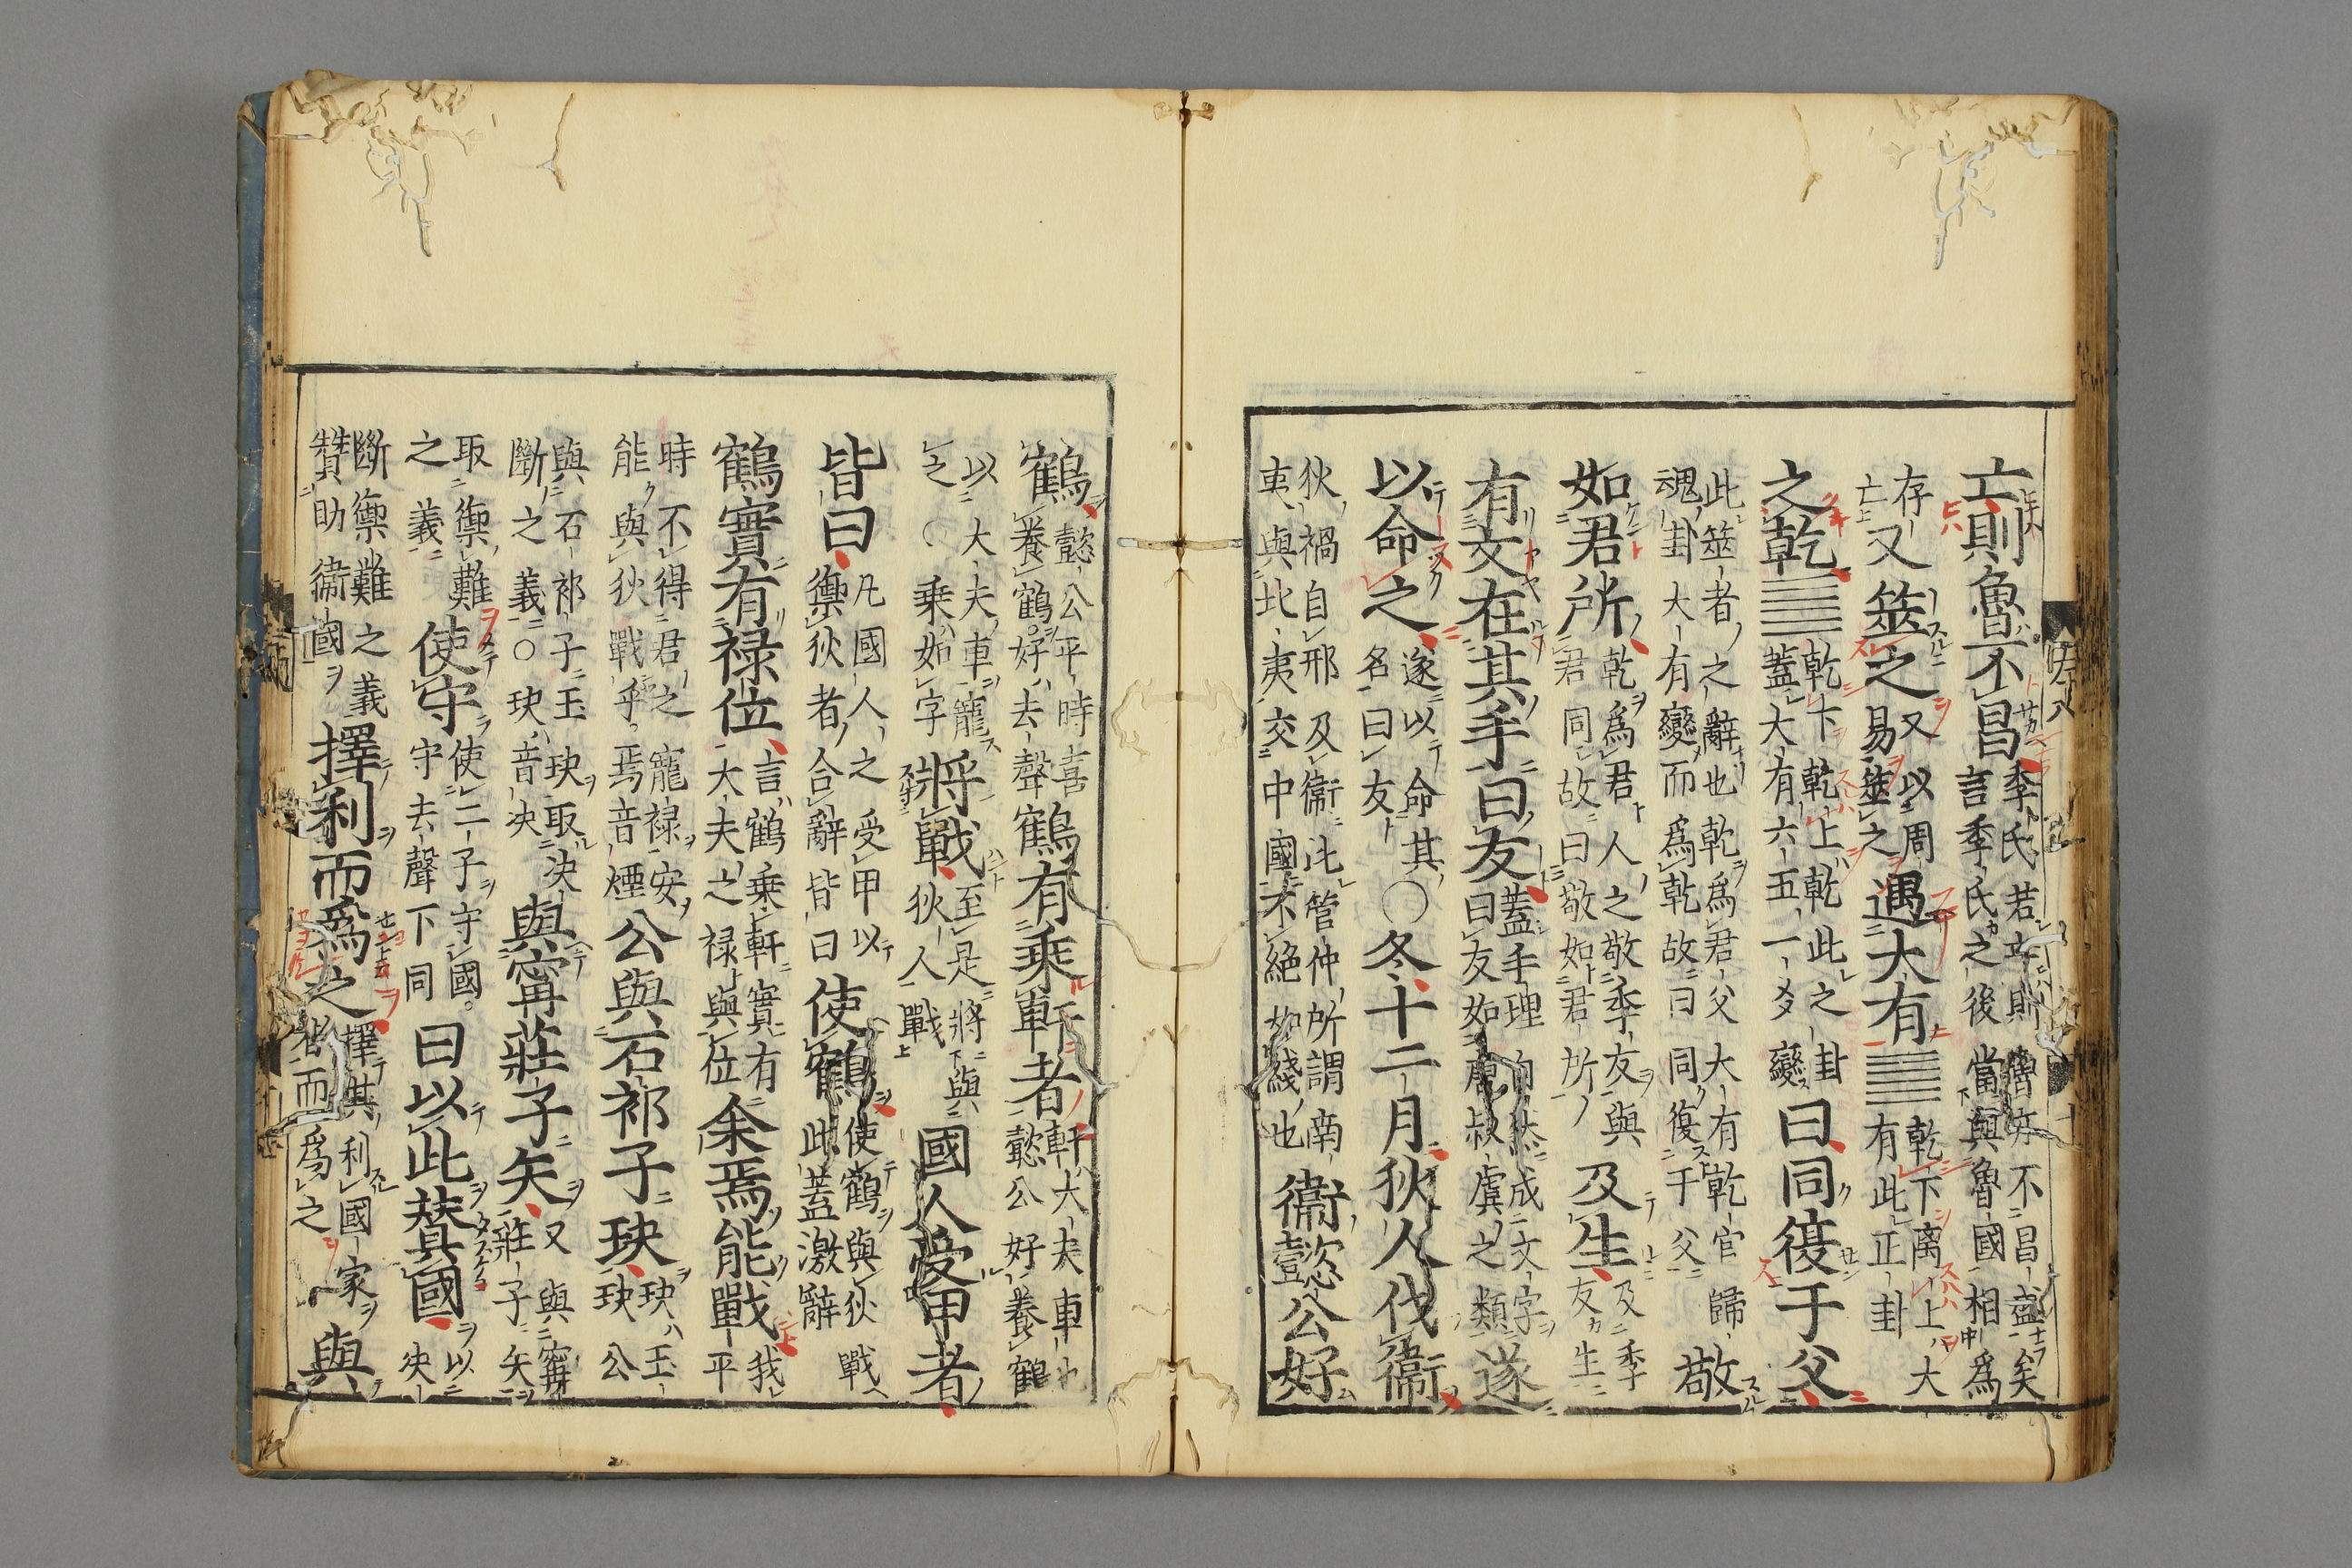 亡則魯不昌季氏若亡則魯亦不昌盛矣言季氏之後當與魯國相為
存亡又筮之又以周易筮之遇大有䷍乾下離上大有此正卦
之乾䷀乾下乾上乾此之卦蓋大有六五一爻變曰同復于父
此筮者之辭也乾爲君父大有乾官歸魂卦大有變而爲乾故曰同復于父敬
如君所乾爲君人之敬季友與君同故曰敬如君所及生及季友生
有文在其手曰友蓋手理自然成文字曰友如唐叔虞之類遂
以命之遂以命其名曰友○冬十二月狄人伐衞
狄禍自邢及衞此管仲所謂南夷與北夷交中國不絶如綫也衞懿公好
鶴懿公平時喜養鶴好去聲鶴有乗軒者軒大夫車也懿公好養鶴
以大夫車寵之○乗如字將戰至是將與狄人戰國人受甲者
皆曰凡國人之受甲以禦狄者合辭皆曰使鶴使鶴與狄戰此蓋激辭
鶴實有禄位言鶴乗軒實有大夫之禄與位余焉能戰我平
時不得君之寵禄安能與狄戰乎焉音煙公與石祁子玦玦玉玦公
與石祁子玉玦取决斷之義○玦音决與寗莊子矢又與寗莊子矢
取禦難之義使守使二子守國守去聲下同曰以此賛國以决
斷禦難之義賛助衞國擇利而爲之擇其利國家者而爲之與